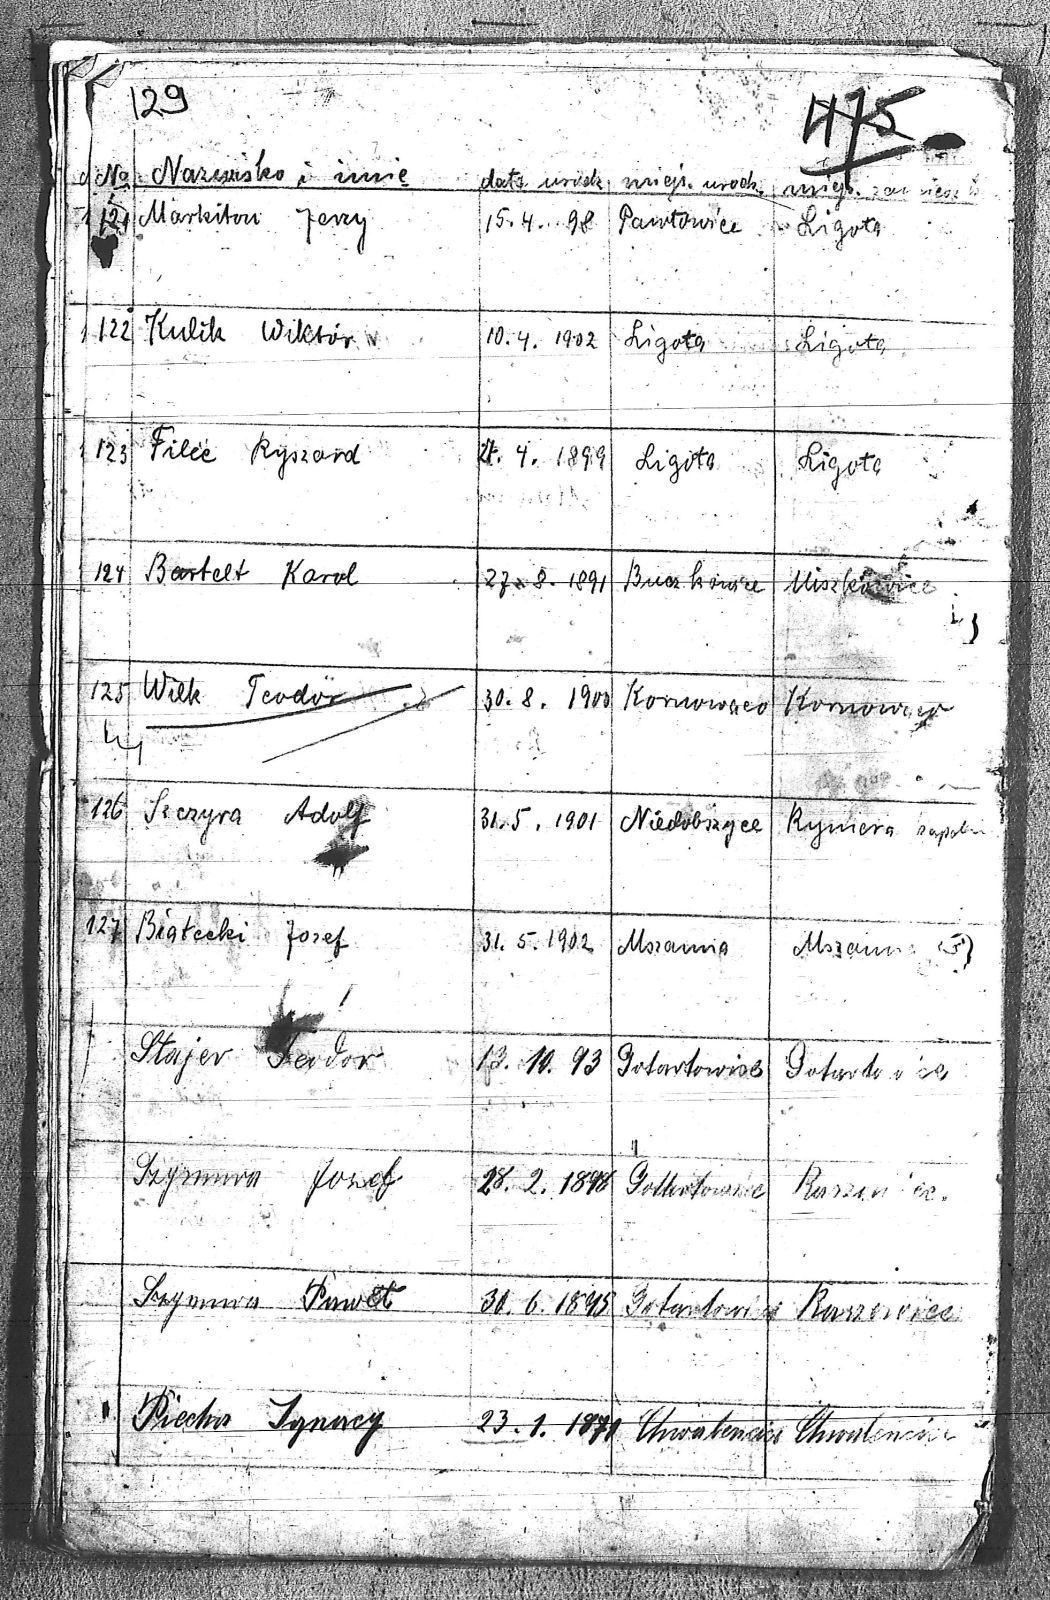 129
1175
No Nazwisko i imię data urodz. miejs. urodz. miejs. zamieszk
121 Markiton Jerzy 15. 4. 98 Pawłowice Ligota
122 Kulik Wiktór 10. 4. 1902 Ligota Ligota
123 Filec Ryszard 4. 1899 Ligota Ligota
124 Bartelt Karol 27. 8. 1891 Miszkowice
125 Wilk Teodór 30. 8. 1900 Kornowaco Kornowaco
126 Szczyra Adolf 31. 5. 1901 Niedobszyce Rymera
127 Białecki Jozef 31. 5. 1902 Mszanna Mszanna
Stajer Teodor 13. 10. 93 Gotartowice
Jozef 28. 2. 1898 Gotartowice
Paweł 30. 6. 1895 Gotartowice Raszowice
Piecha Ignacy 23. 1. Chwałencice Chwałencice